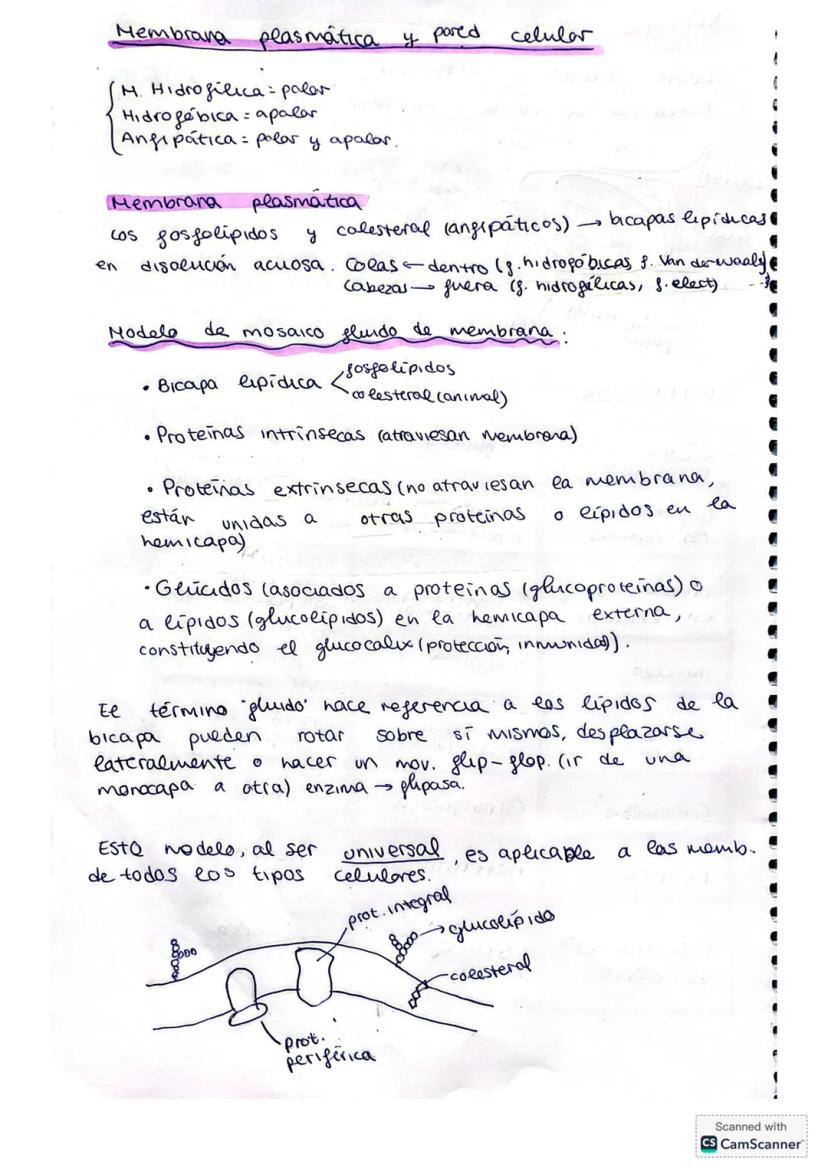 Membrana plasmática y pared celular
M. Hidrofílica = polar
Hidrofóbica = apolar
Anfipática = polar y apolar.
Membrana plasmática
Los fosfolípidos y colesterol (anfipáticos) → bicapas lipídicas
en disolución acuosa. Colas ← dentro (f. hidrofóbicas, f. Van der waals)
Cabezas → fuera (f. hidrofílicas, f. elect)
Modelo de mosaico fluido de membrana:
• Bicapa lipídica < fosfolípidos
colesterol (animal)
• Proteínas intrínsecas (atraviesan membrana)
• Proteínas extrínsecas (no atraviesan la membrana,
están unidas a otras proteínas o lípidos en la
hemicapa)
• Glúcidos (asociados a proteínas (glucoproteínas) o
a lípidos (glucolípidos) en la hemicapa externa,
constituyendo el glucocalix (protección, inmunidad).
El término "fluido" hace referencia a los lípidos de la
bicapa pueden rotar sobre sí mismos, desplazarse
lateralmente o hacer un mov. flip-flop. (ir de una
monocapa a otra) enzima → flipasa.
Este modelo, al ser universal, es aplicable a las memb.
de todos los tipos celulares.
prot. integral
glucolípido
colesterol
prot.
periférica
Scanned with
CS CamScanner